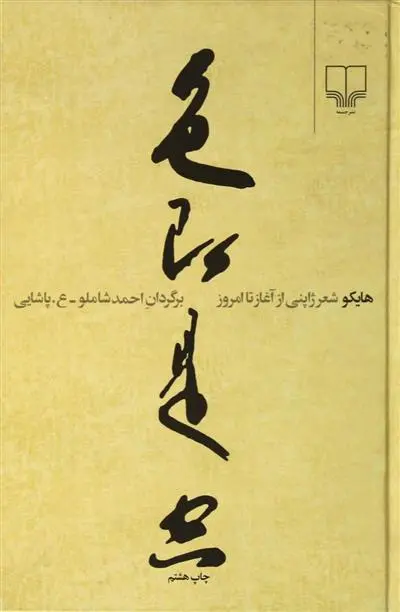 نشر چشمه
色
即
是
空
هایکو شعر ژاپنی از آغاز تا امروز برگردانِ احمد شاملو ـ ع. پاشایی
چاپ هشتم